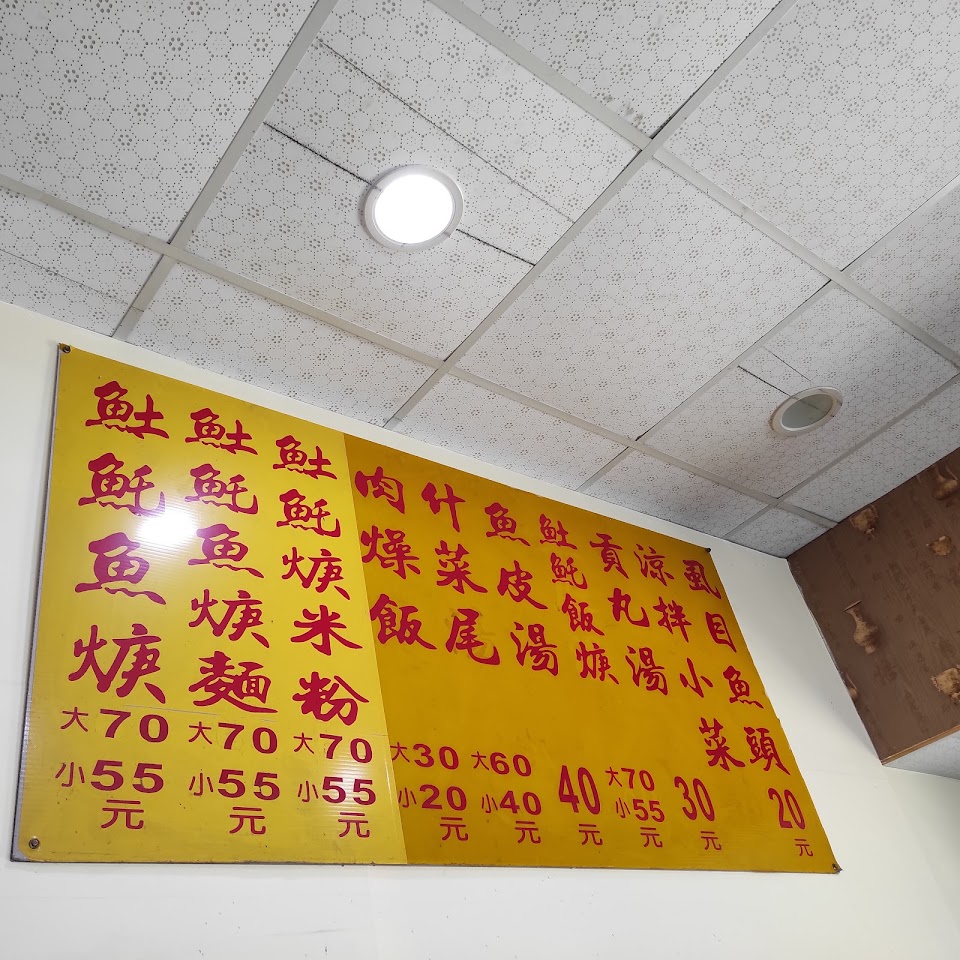 土魠魚焿
大70
小55
元
土魠魚焿麵
大70
小55
元
土魠焿米粉
大70
小55
元
肉燥飯
大30
小20
元
什菜尾
大60
小40
元
魚皮湯
40
元
土魠飯焿
大70
小55
元
貢丸湯
30
元
涼拌小菜
虱目魚頭
20
元